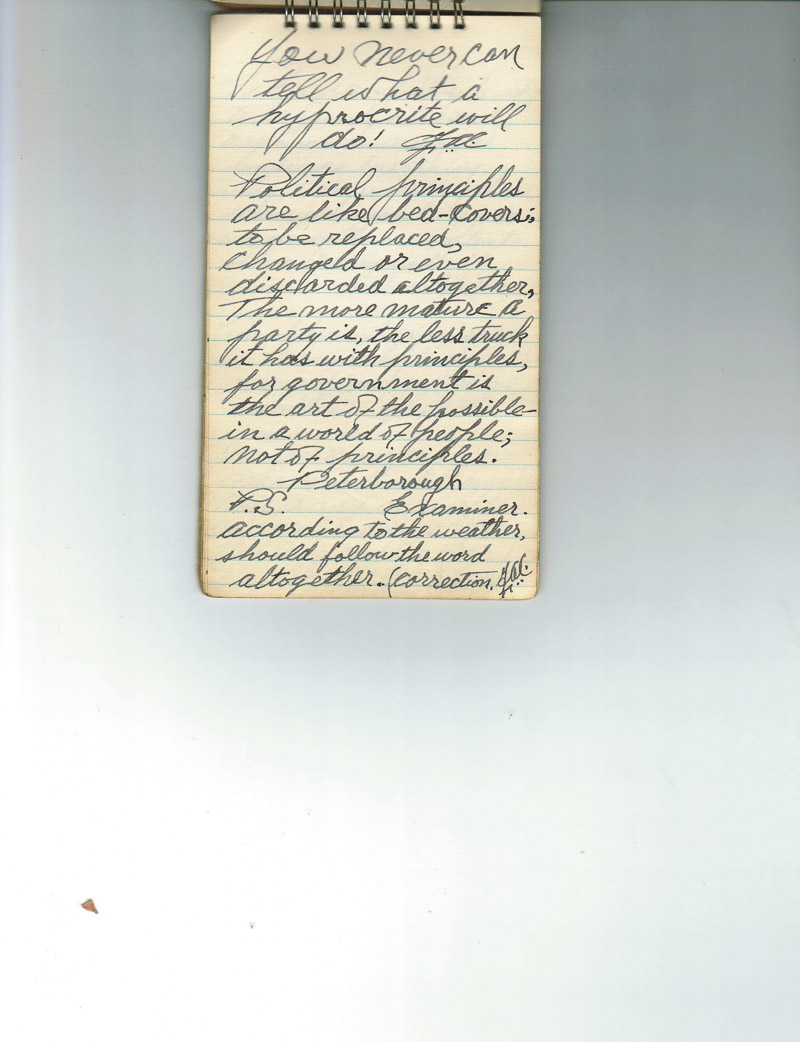 You never can
tell what a
hyprocrite will
do!
Political principles
are like bed-covers;
to be replaced,
changed or even
discarded altogether,
The more mature a
party is, the less truck
it has with principles,
for government is
the art of the possible—
in a world of people;
not of principles.
Peterborough
P.S. Examiner.
according to the weather,
should follow the word
altogether. (correction.